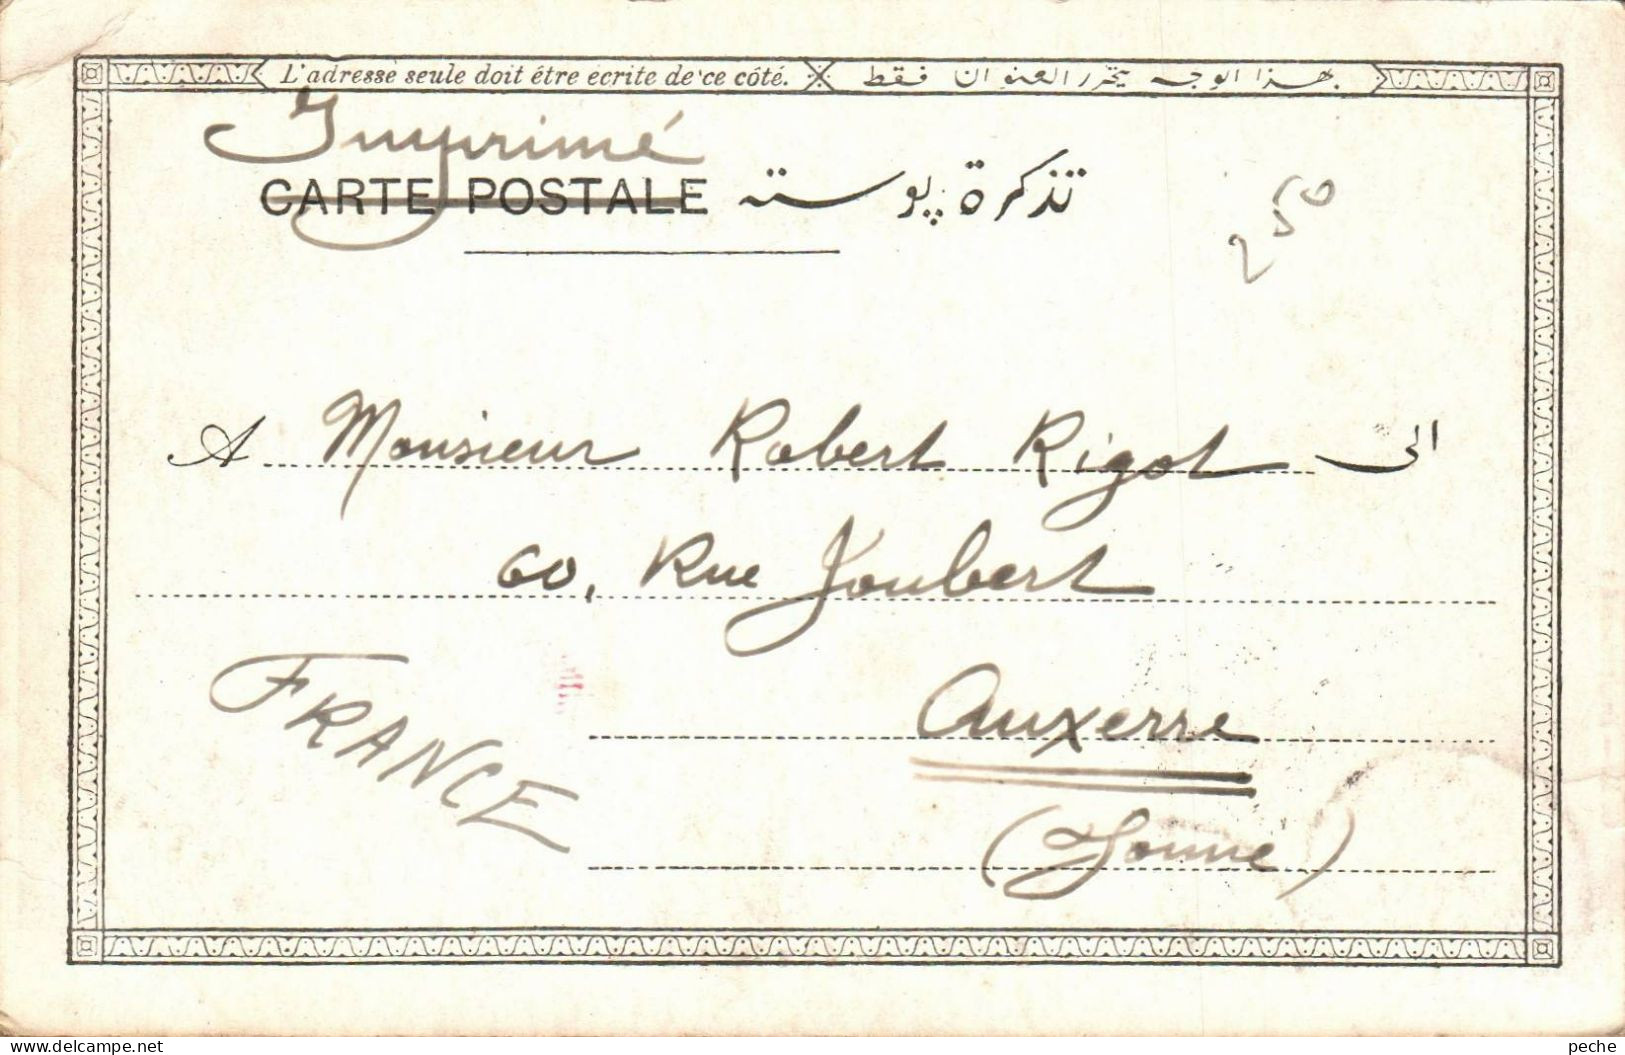 L'adresse seule doit étre ecrite de ce côté. بهذا الوجه يتحرر العنوان فقط
Imprimé
CARTE POSTALE تذكرة پوسته
250
A Monsieur Robert Rigot الى
60, Rue Joubert
FRANCE
Auxerre
(Yonne)
delcampe.net
peche